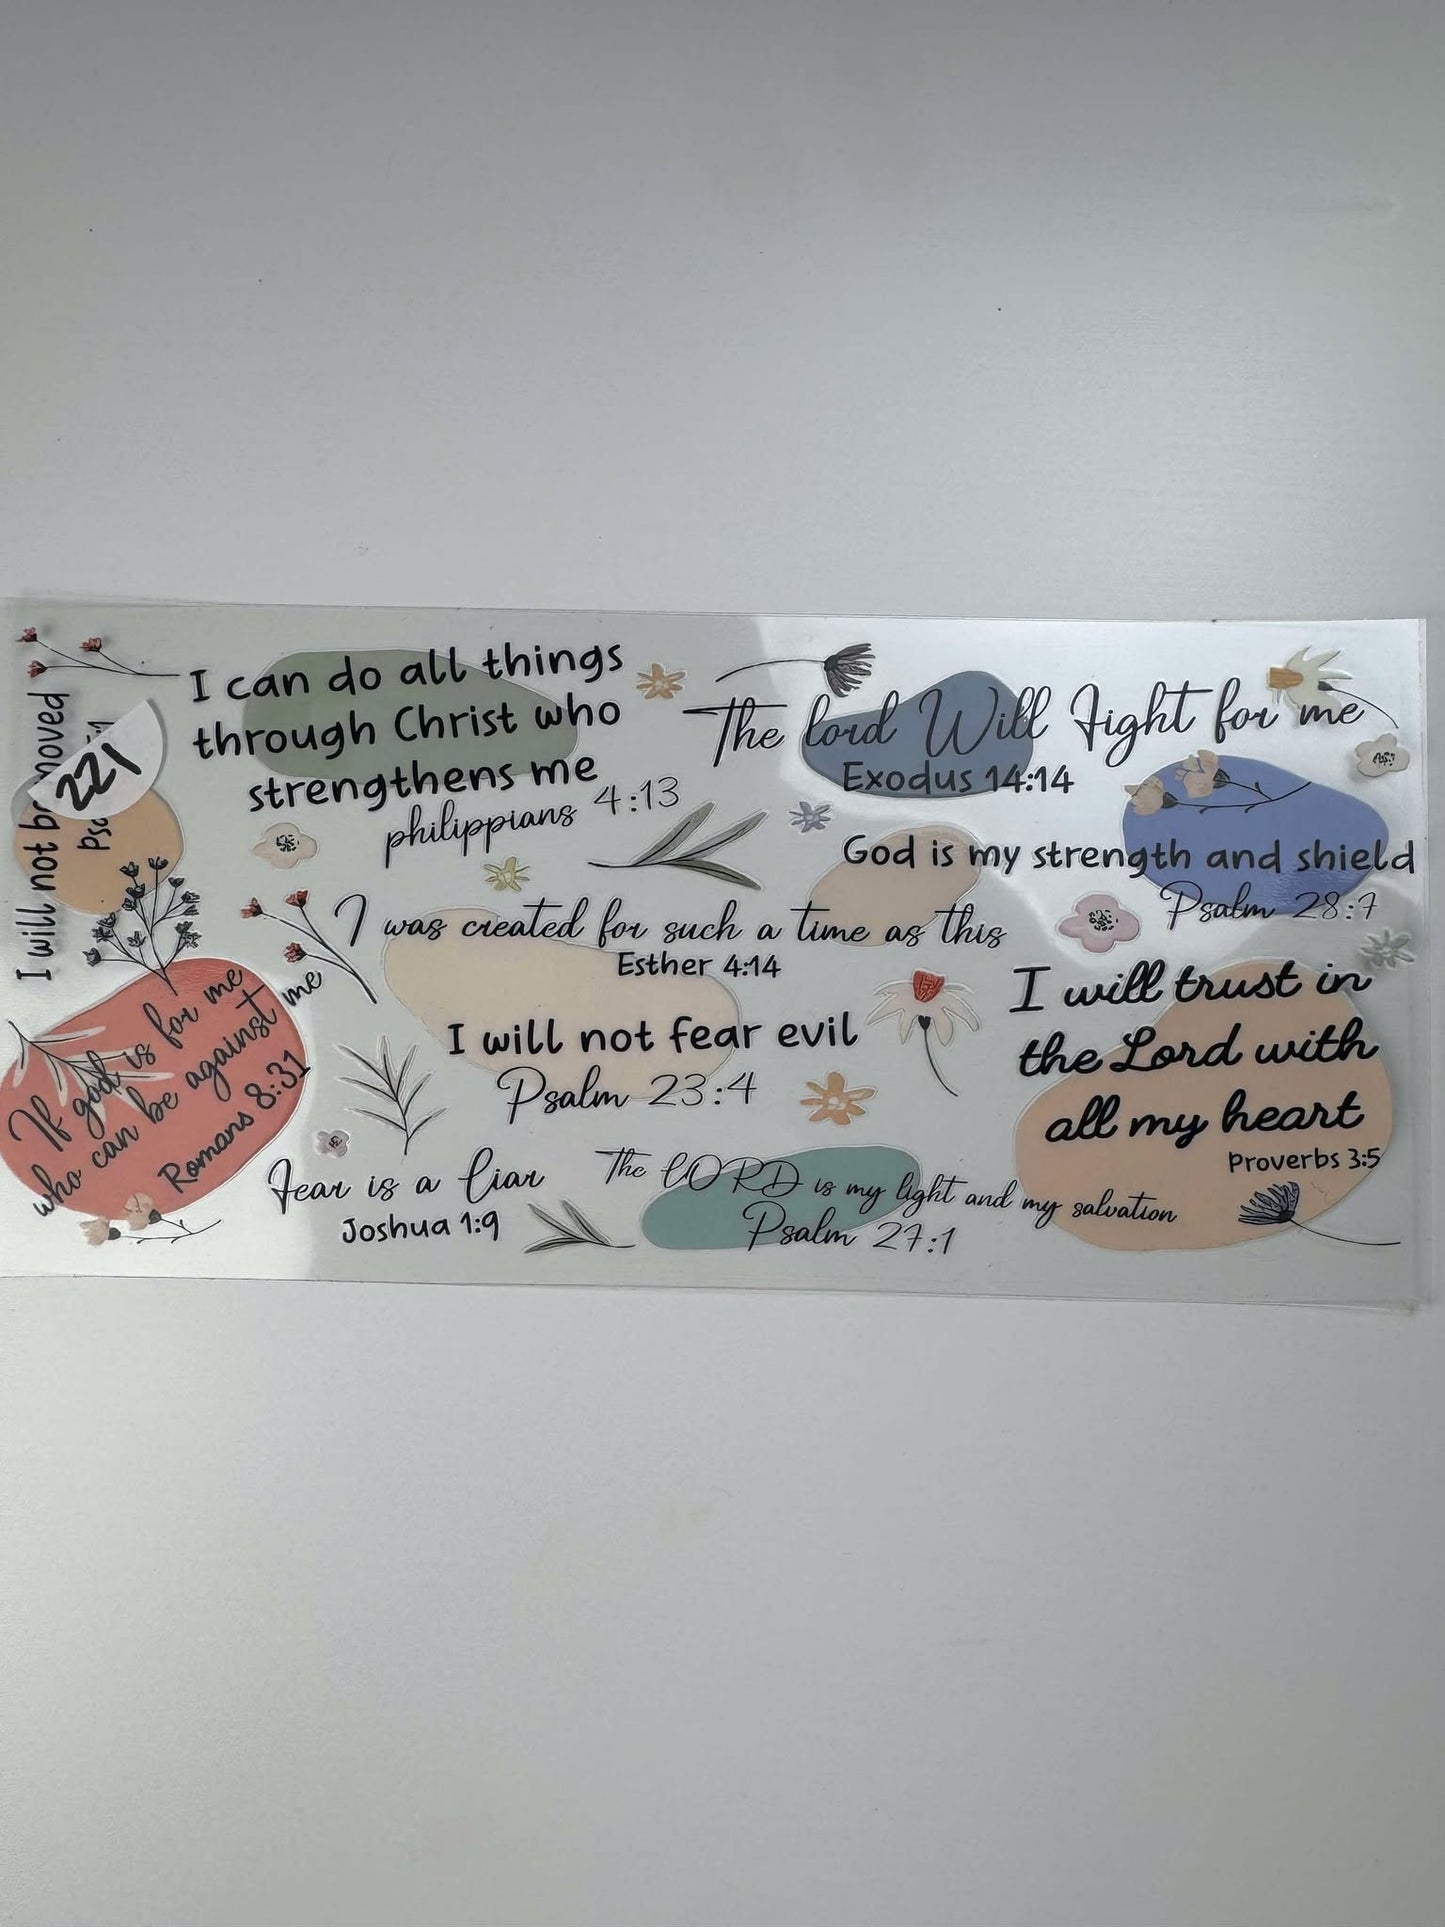 I can do all things
through Christ who
strengthens me
philippians 4:13
The lord Will Fight for me
Exodus 14:14
God is my strength and shield
Psalm 28:7
I was created for such a time as this
Esther 4:14
I will not fear evil
Psalm 23:4
I will trust in
the Lord with
all my heart
Proverbs 3:5
Fear is a liar
Joshua 1:9
The LORD is my light and my salvation
Psalm 27:1
If god is for me
who can be against me
Romans 8:31
I will not moved
221